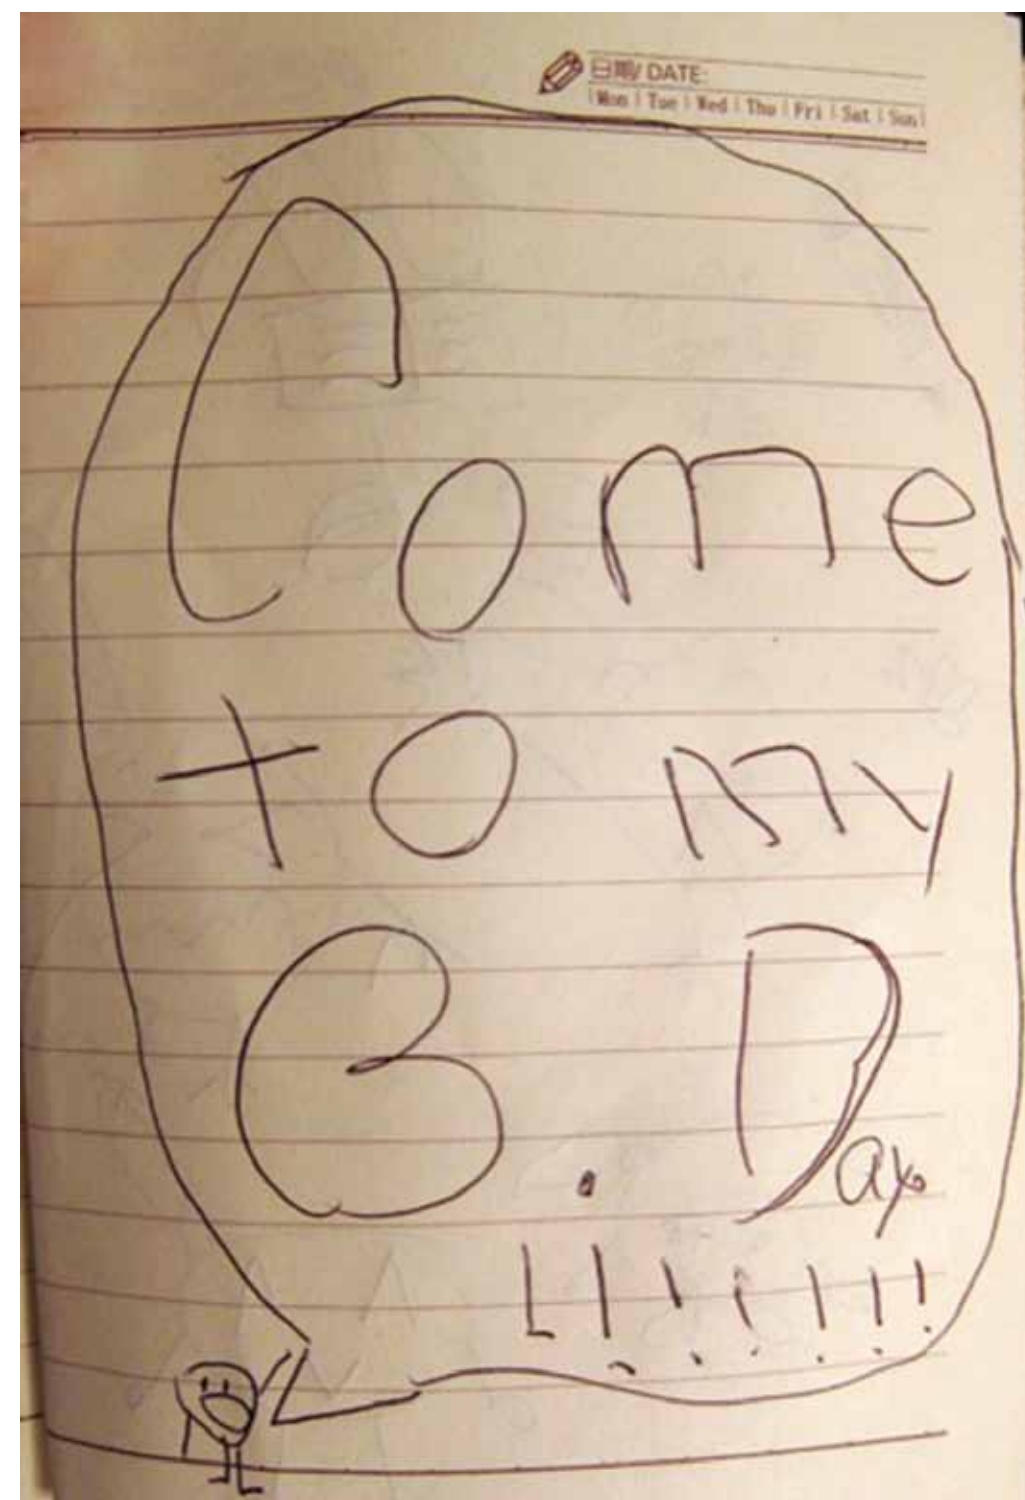 日期/ DATE:
Mon Tue Wed Thu Fri Sat Sun
Come
to my
B.Day.
L!!!!!!